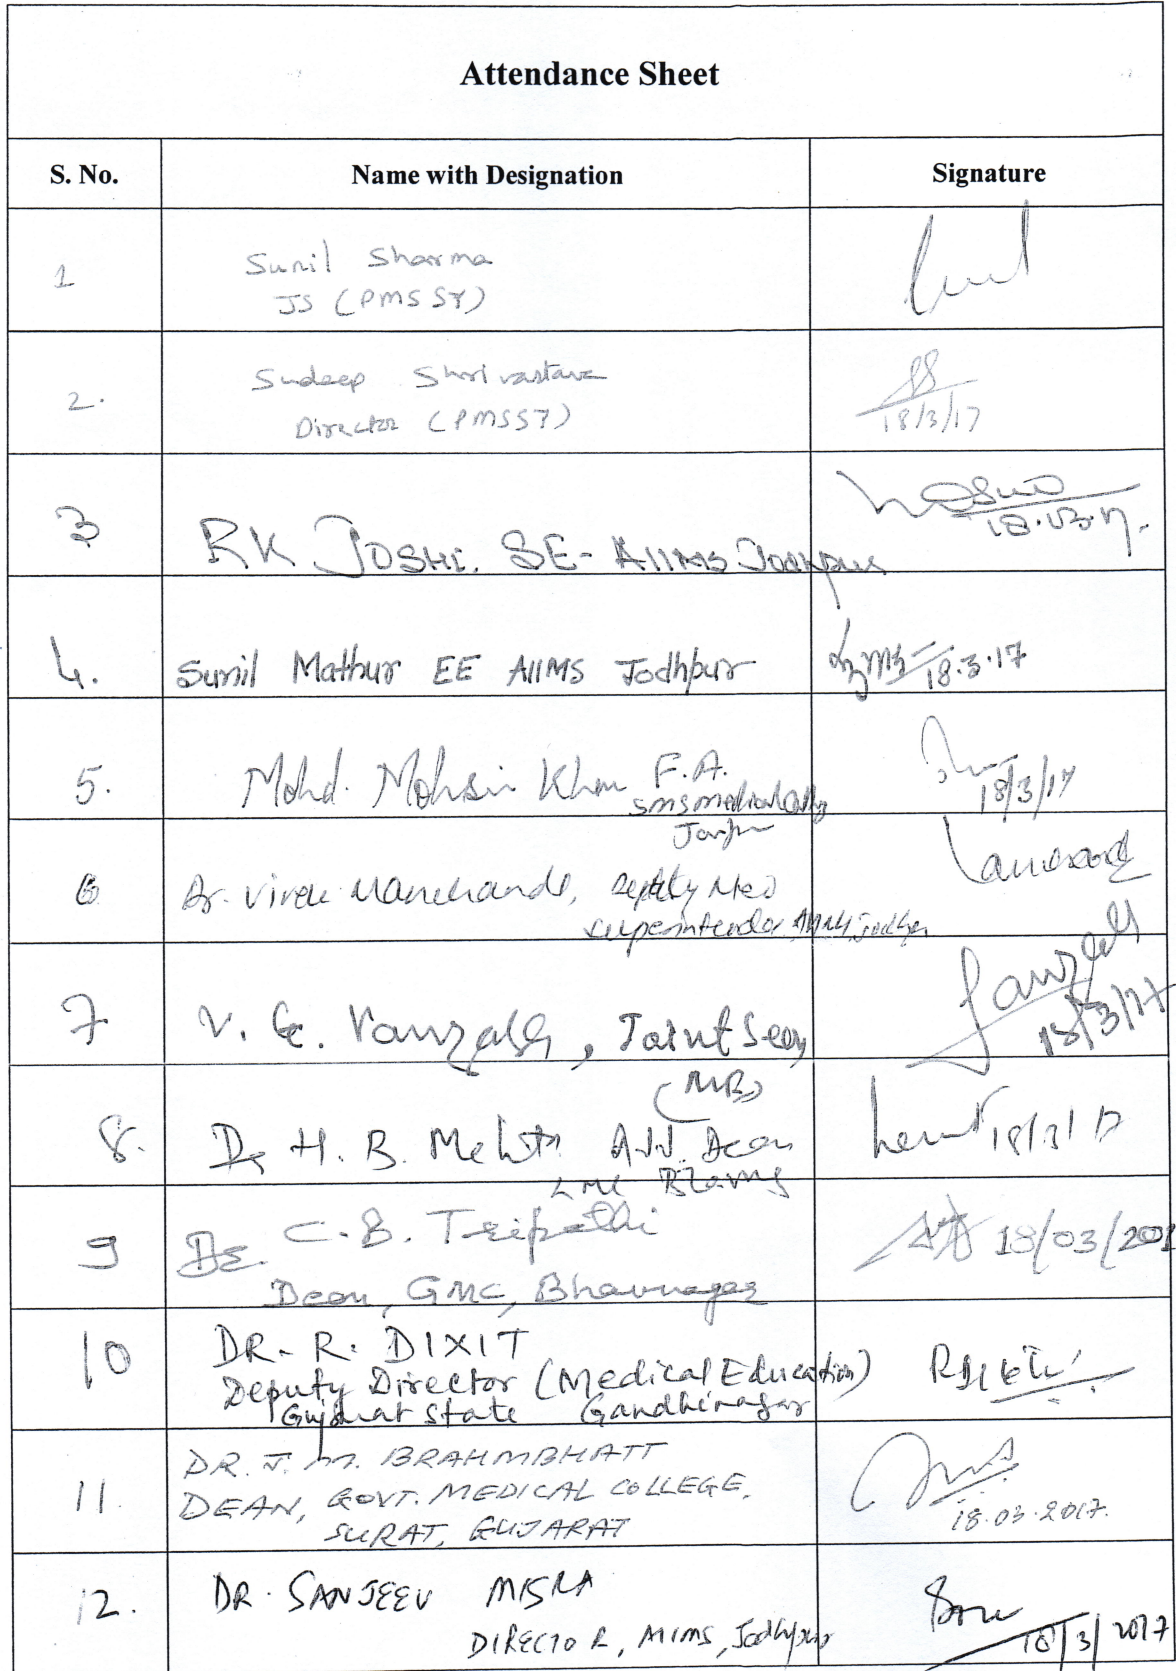 Attendance Sheet
S. No. Name with Designation Signature
1 Sunil Sharma
JS (PMSSY)
2. Sudeep Shrivastava
Director (PMSSY)
18/3/17
3 RK JOSHI. SE- AIIMS Jodhpur
18.03.17.
4. Sunil Mathur EE AIIMS Jodhpur
18.3.17
5. Mohd. Mohsin Khan F.A.
SMS medical
18/3/17
6 Dr. Vivek Manchanda, Deputy Med
Superintendor
7 V. G. Vanzara, Joint Secy
18/3/17
(MB)
8. Dr H. B. Mehta Add. Dean
18/3/17
9 Dr. C.B. Tripathi
Dean, GMC, Bhavnagar
18/03/201
10 DR. R. DIXIT
Deputy Director (Medical Education)
Gujarat State Gandhinagar
11. DR. J. M. BRAHMBHATT
DEAN, GOVT. MEDICAL COLLEGE,
SURAT, GUJARAT
18.03.2017.
12. DR. SANJEEV MISRA
DIRECTOR, AIIMS, Jodhpur
18/3/2017